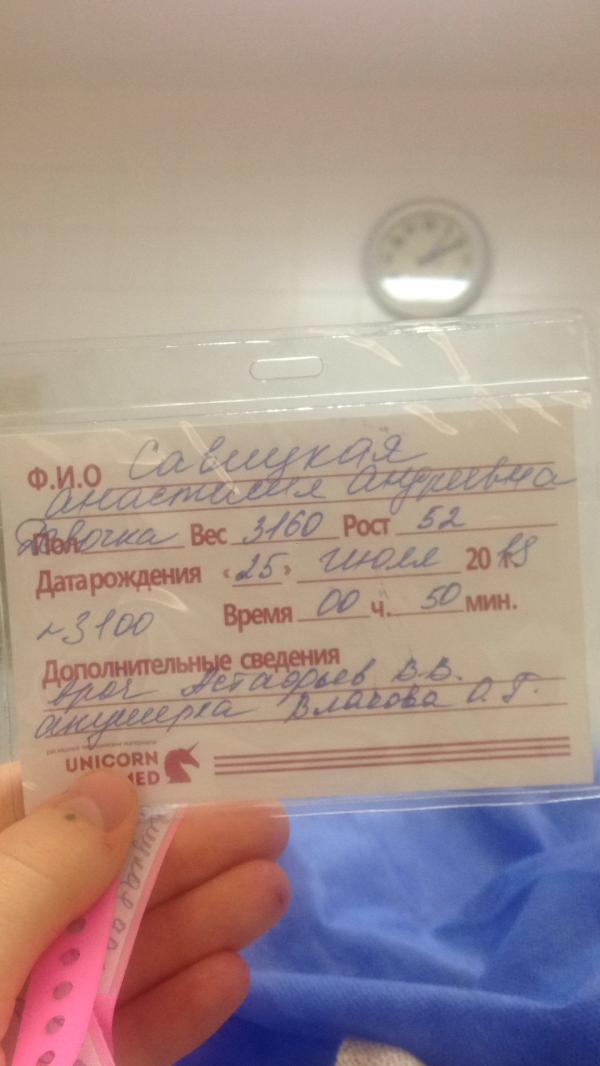 Ф.И.О Савицкая
Анастасия Андреевна
Пол Девочка Вес 3160 Рост 52
Дата рождения «25» Июля 2018
~3100 Время 00 ч. 50 мин.
Дополнительные сведения
Врач Астафьев В.В.
акушерка Влахова О.Г.
расходные медицинские материалы
UNICORN
MED